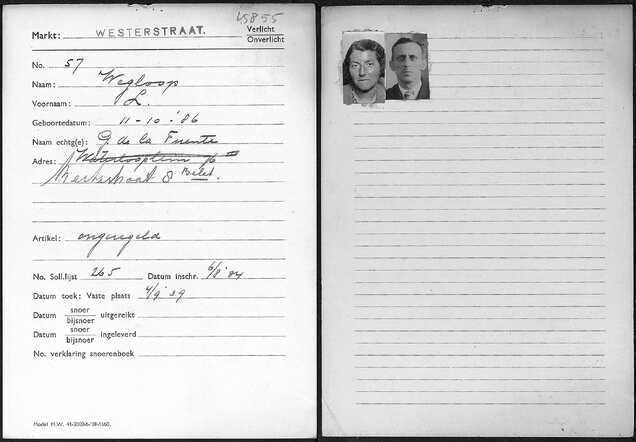 45855
Markt: WESTERSTRAAT. Verlicht
Onverlicht
No. 57
Naam: Wegloop
Voornaam: L.
Geboortedatum: 11-10-'86
Naam echtg(e): G. de la Fuente
Adres: Waterlooplein
Kerkstraat 8
Artikel: ongeregeld
No. Soll.lijst 265 Datum inschr. 6/8 '34
Datum toek: Vaste plaats 4/9 '39
Datum snoer
bijsnoer uitgereikt
Datum snoer
bijsnoer ingeleverd
No. verklaring snoerenboek